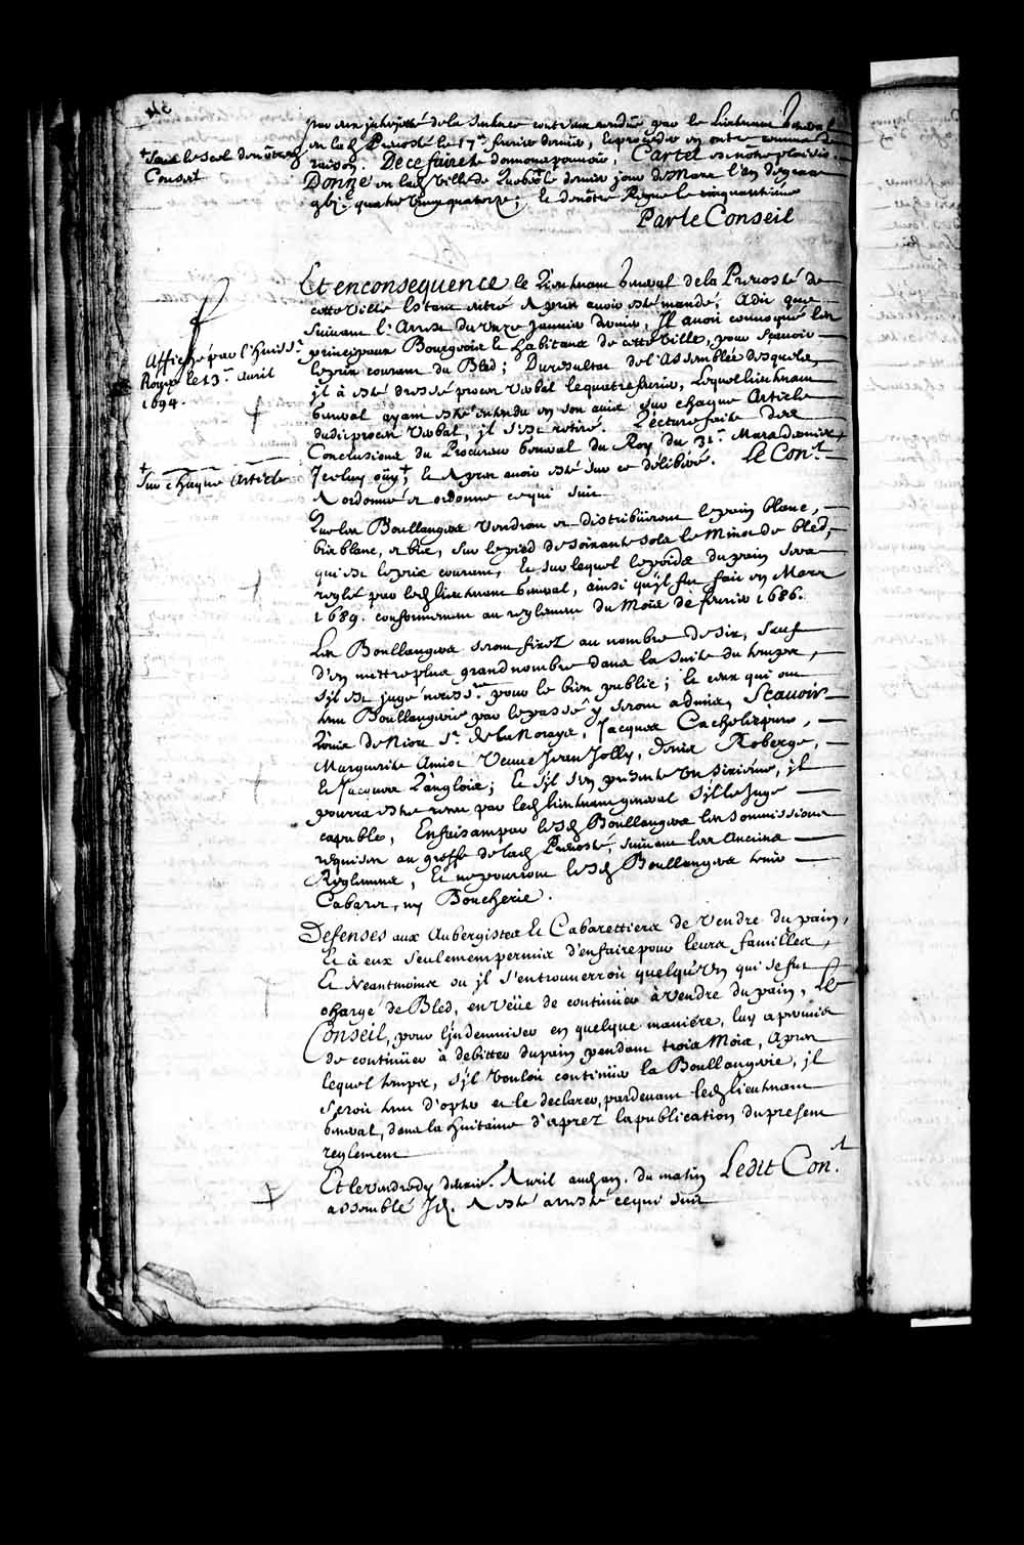 par eux interjetté de la Sentence contr'eux rendüe par le Lieutenant General
en lad. Prevosté le 17e. fevrier dernier, et proceder en outre comme de
raison. De ce faire te donnons pouvoir, Car tel est nôtre plaisir.
Donné en lad. Ville de Quebec le dernier jour de Mars l'an de grace
gbje. quatre vingt quatorze; et de nôtre Regne le cinquantiéme
Par le Conseil
+ Sous le Scel de nôtred.
Conseil
Et en consequence le Lieutenant General de la Prevosté de
cette Ville Estant entré Apres avoir esté mandé, A dit que
suivant l'Arrest du Onze Janvier dernier, Il avoit convoqué les
principaux Bourgeois et habitans de cette Ville, pour sçavoir
le prix courant du Bled; Du resultat de l'Assemblée desquels,
il a esté dressé procez verbal le quatre fevrier, Lequel Lieutenant
General ayant esté entendu en son avis sur chaque Article
dudit procez Verbal, il s'est retiré. Lecture faite des
Conclusions du Procureur General du Roy du 31e. Mars dernier
Iceluy oüy +, et Apres avoir esté sur ce déliberé. Le Conel.
A ordonné et ordonne ce qui suit
Affiché par l'huissr.
Roger le 13e. Avril
1694.
+ Sur chaque Article
Que les Boullangers Vendront et distribüeront le pain blanc,
bis blanc, et bis, sur le pied de soixante sols le Minot de bled,
qui est le prix courant, Et sur lequel le poids du pain sera
reglé par led. Lieutenant General, ainsi qu'il fut fait en Mars
1689. conformement au reglement du Mois de fevrier 1686.
Les Boullangers seront fixez au nombre de six, sauf
d'en mettre plus grand nombre dans la suite du temps,
s'il est jugé necessre. pour le bien public; Et ceux qui ont
tenu Boullangerie par le passé y seront admis, Sçavoir
Loüis de Niort Sr. de la Noraye, Jacques Cachelievre,
Marguerite Amiot Veuve Jean Jolly, Denis Roberge,
Et Jacques Langlois; Et s'il s'en presente un sixiéme, il
pourra estre receu par led. Lieutenant general s'il le juge
capable, En faisant par lesd. Boullangers les soumissions
requises au greffe de lad. Prevosté, suivant les Anciens
Reglemens, Et ne pourront lesd. Boullangers tenir
Cabaret, ny Boucherie.
Defenses aux Aubergistes Et Cabarettiers de vendre du pain,
Et à eux seulement permis d'en faire pour leurs familles,
Et Neantmoins ou il s'en trouverroit quelqu'Un qui se fut
chargé de Bled, en veüe de continüer à vendre du pain, Le
Conseil, pour l'indemniser en quelque maniére, luy a permis
de continüer à debitter du pain pendant trois Mois, Apres
lequel temps, s'il vouloit continüer la Boullangerie, il
seroit tenu d'opter et le declarer, pardevant led. Lieutenant
General, dans la huitaine d'aprez la publication du present
reglement
Et le vendredy Avril aud. an. du matin Ledit Conel.
assemblé A esté arresté ce qui suit